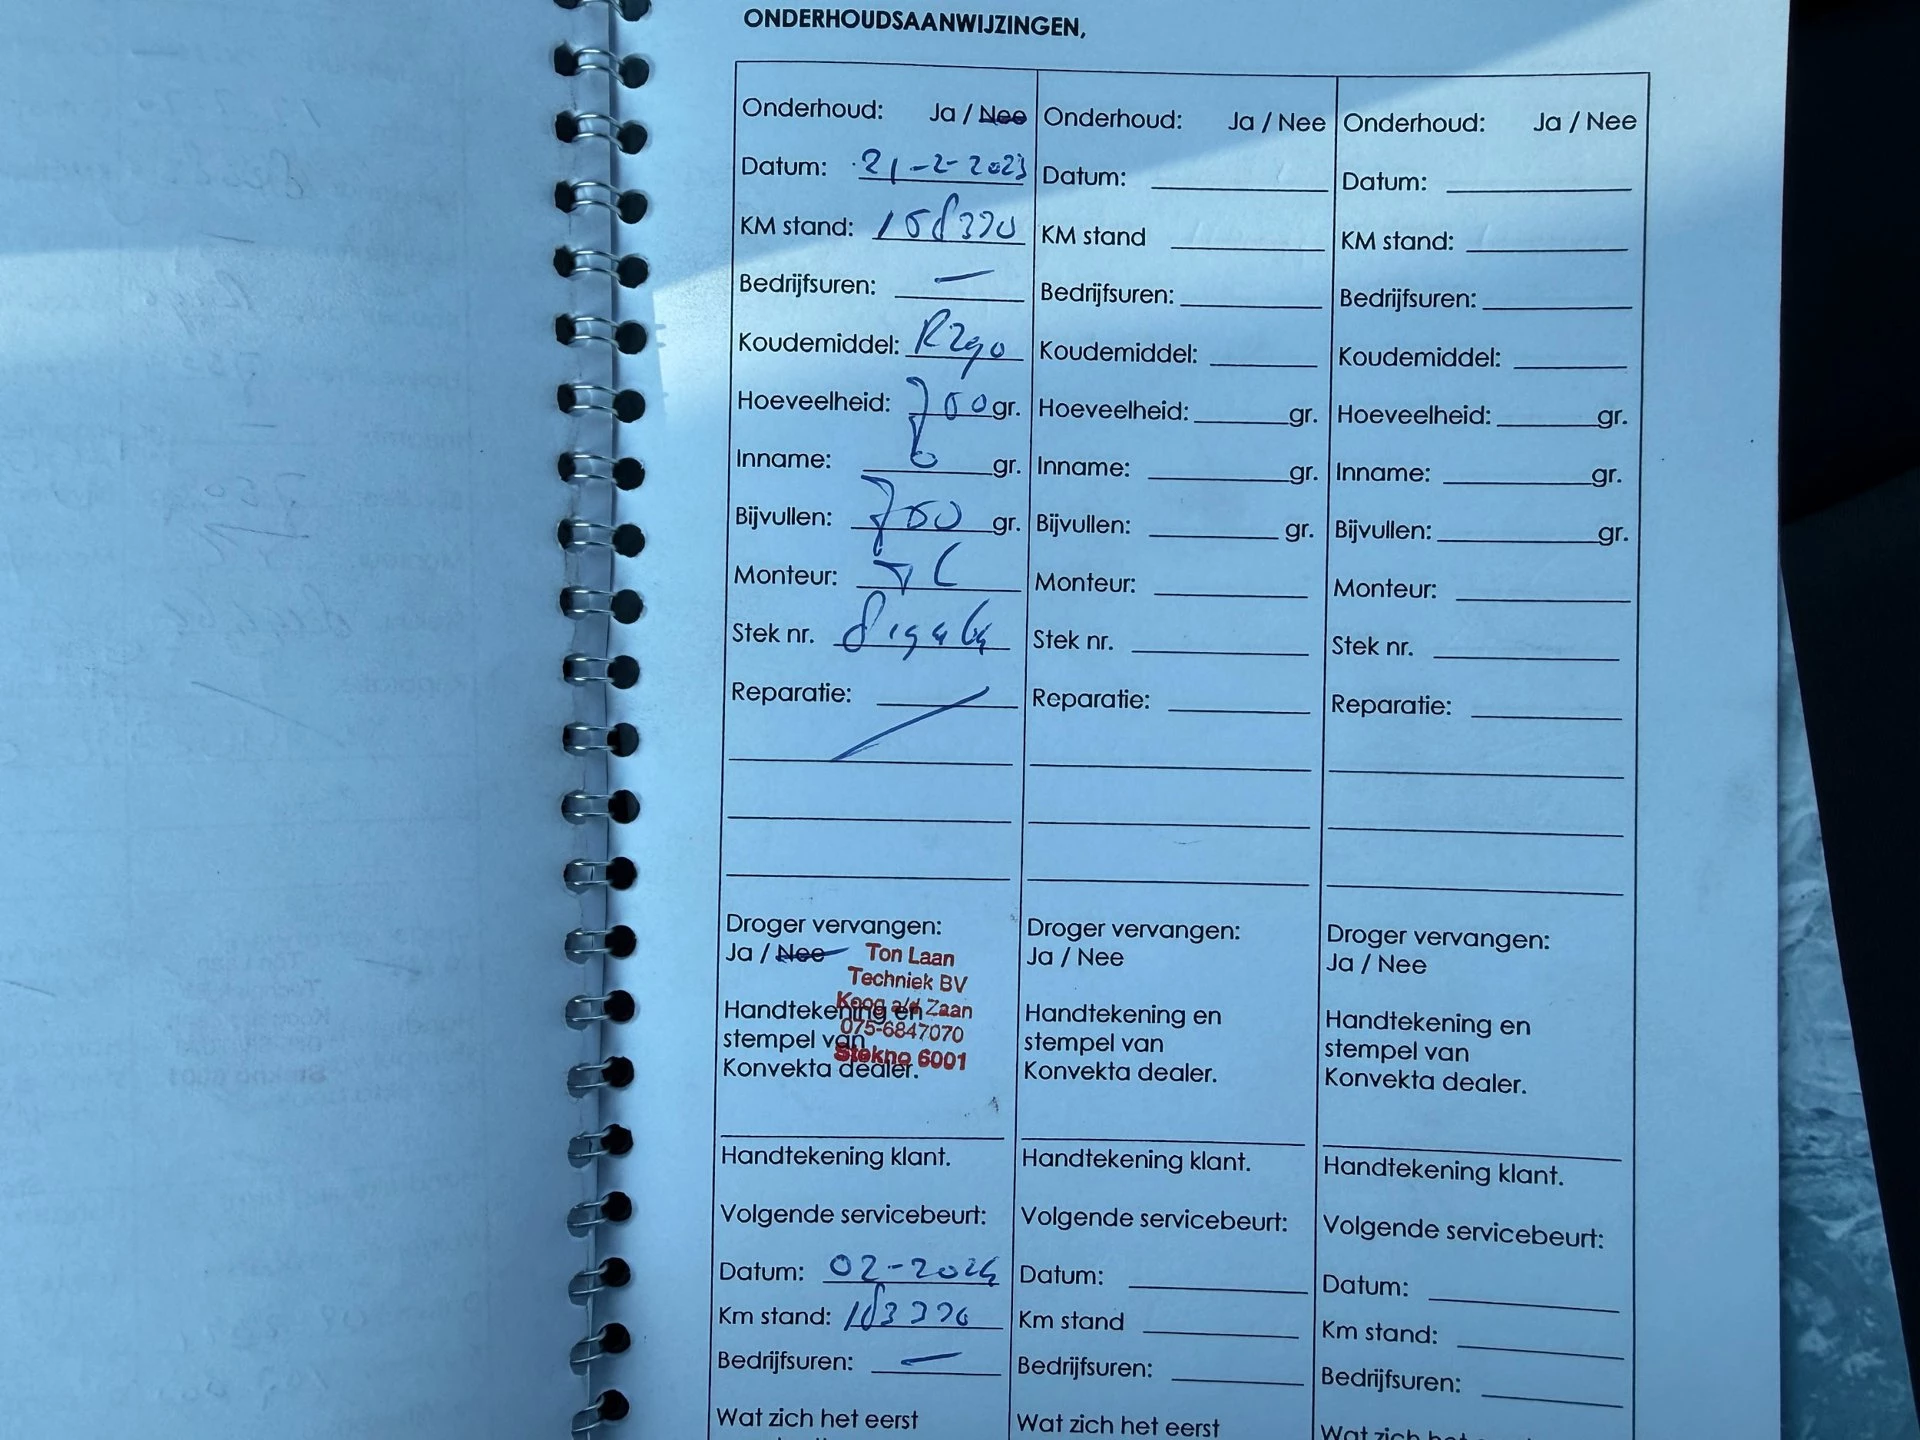 ONDERHOUDSAANWIJZINGEN,
Onderhoud: Ja / Nee
Datum: 21-2-2023
KM stand: 158370
Bedrijfsuren: —
Koudemiddel: R290
Hoeveelheid: 700 gr.
Inname: 0 gr.
Bijvullen: 700 gr.
Monteur:
Stek nr.
Reparatie:
Droger vervangen:
Ja / Nee
Ton Laan
Techniek BV
Koog a/d Zaan
075-6847070
Stekno 6001
Handtekening en
stempel van
Konvekta dealer.
Handtekening klant.
Volgende servicebeurt:
Datum: 02-2024
Km stand: 183370
Bedrijfsuren: —
Wat zich het eerst
Onderhoud: Ja / Nee
Datum:
KM stand
Bedrijfsuren:
Koudemiddel:
Hoeveelheid: gr.
Inname: gr.
Bijvullen: gr.
Monteur:
Stek nr.
Reparatie:
Droger vervangen:
Ja / Nee
Handtekening en
stempel van
Konvekta dealer.
Handtekening klant.
Volgende servicebeurt:
Datum:
Km stand
Bedrijfsuren:
Wat zich het eerst
Onderhoud: Ja / Nee
Datum:
KM stand:
Bedrijfsuren:
Koudemiddel:
Hoeveelheid: gr.
Inname: gr.
Bijvullen: gr.
Monteur:
Stek nr.
Reparatie:
Droger vervangen:
Ja / Nee
Handtekening en
stempel van
Konvekta dealer.
Handtekening klant.
Volgende servicebeurt:
Datum:
Km stand:
Bedrijfsuren:
Wat zich het eerst